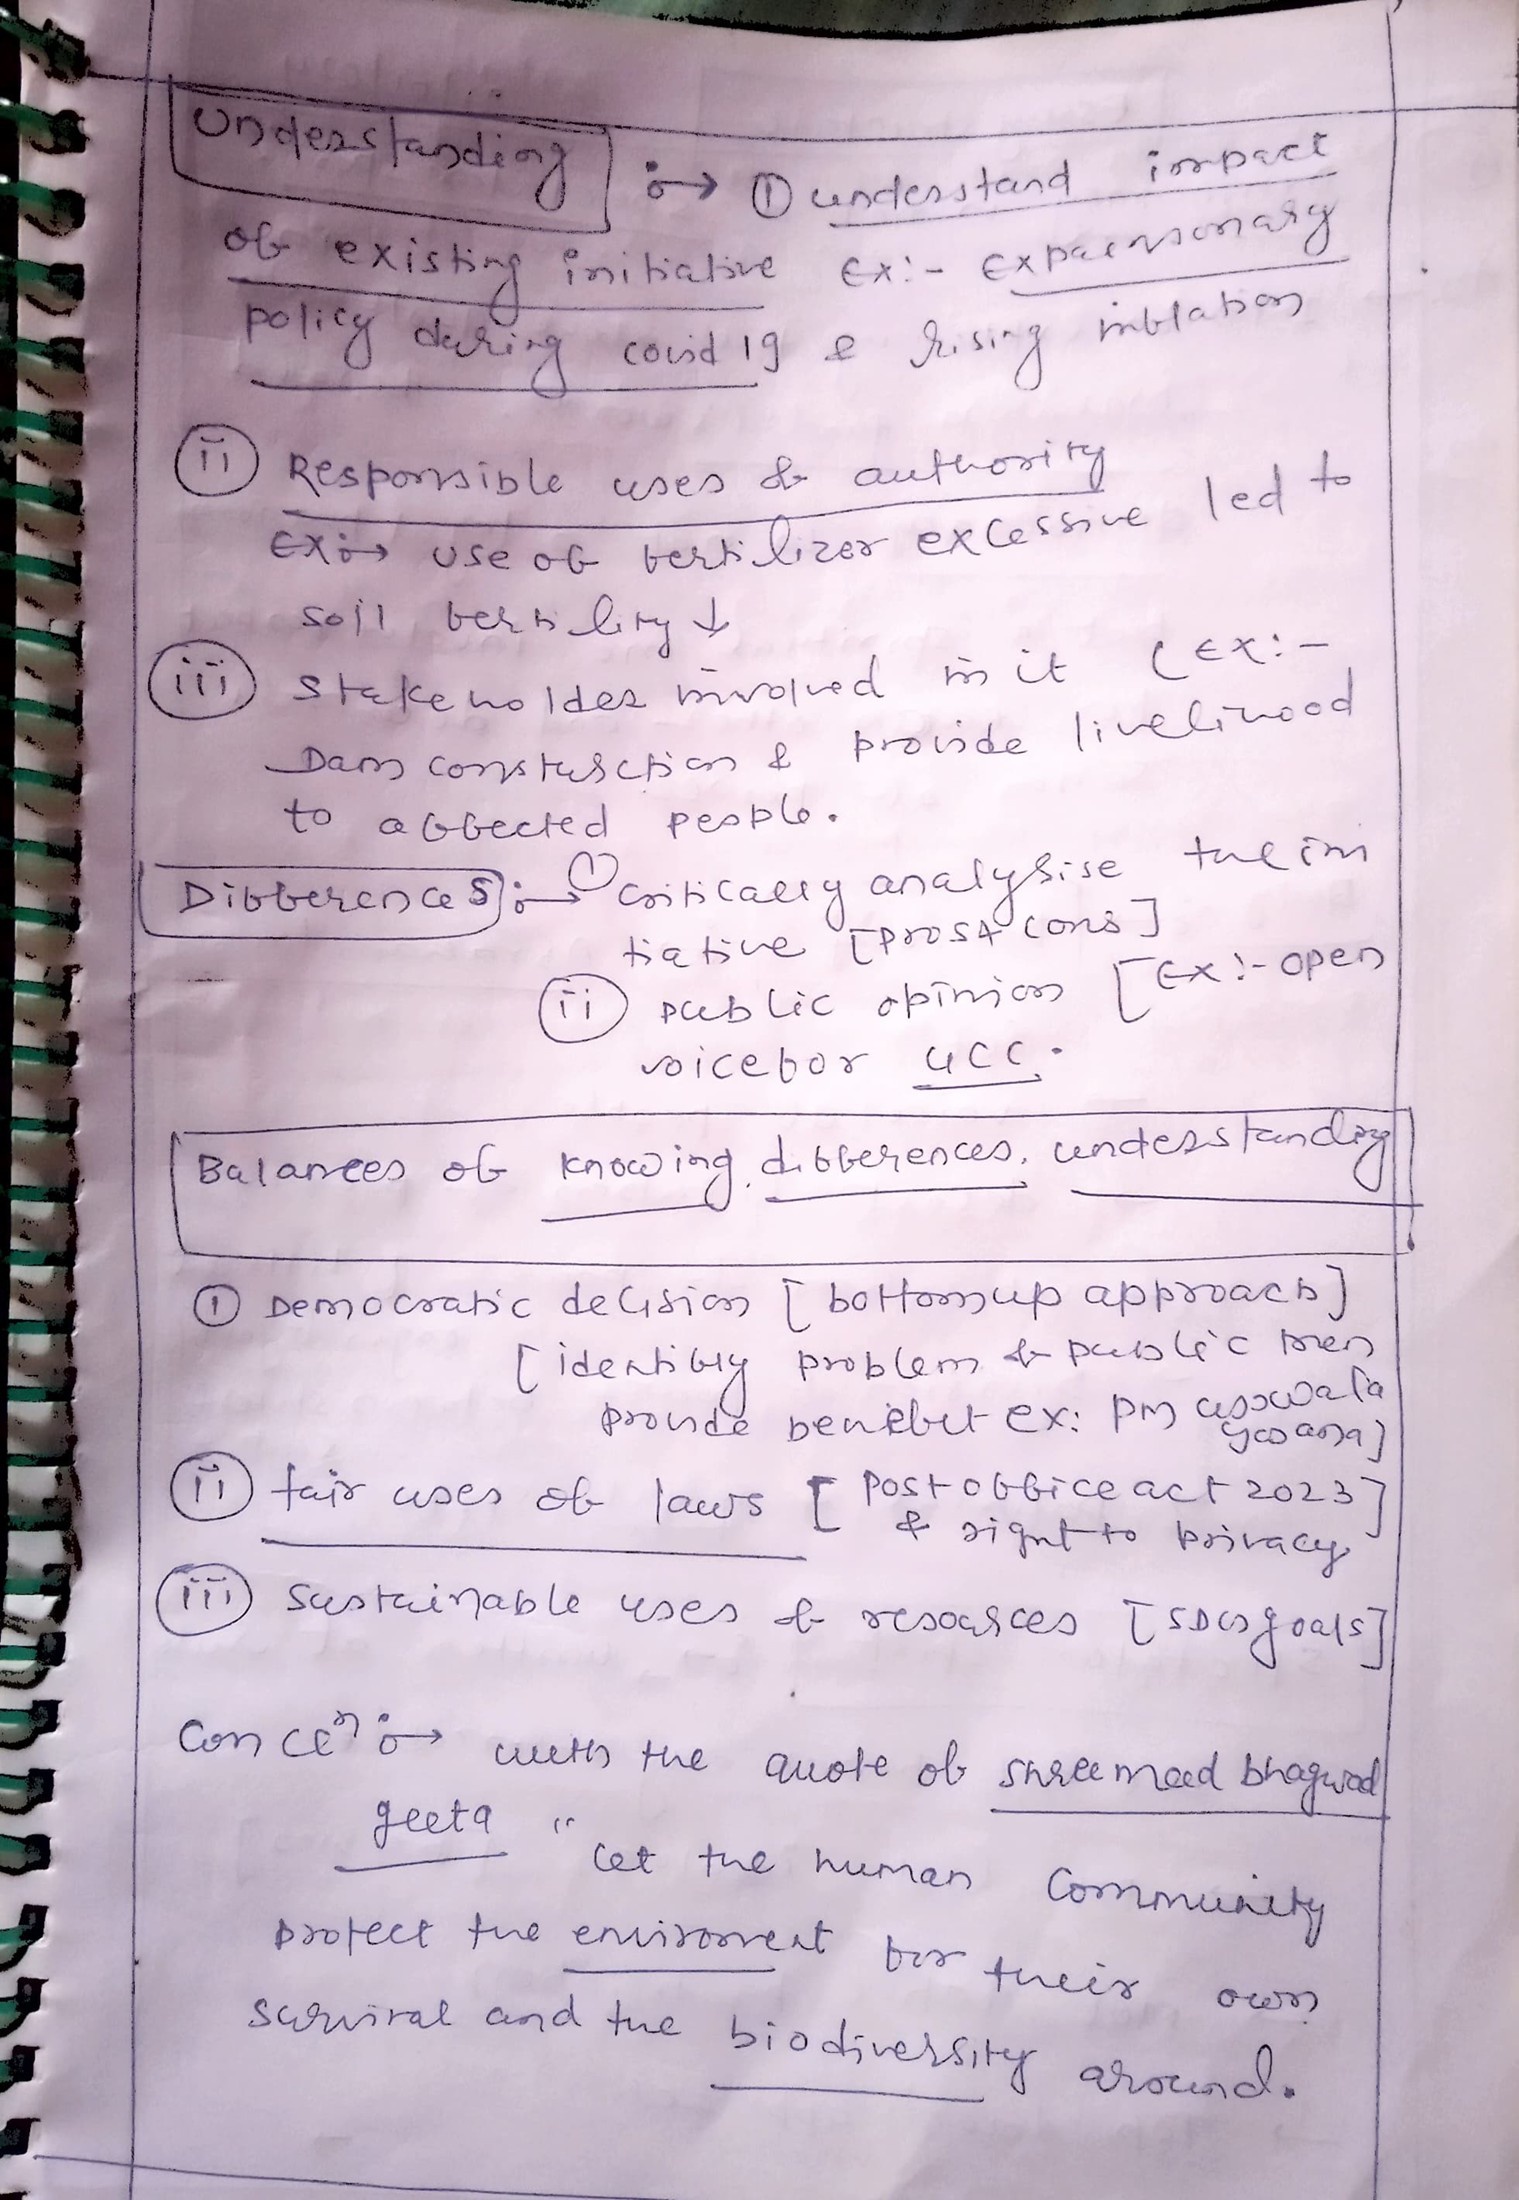 Understanding :→ ① understand impact
of existing initiative Ex:- Expaensonary
policy during covid 19 & rising inflation
(ii) Responsible uses of authority
Ex:→ use of fertilizer excessive led to
soil fertility ↓
(iii) Stakeholder involved in it ( Ex:-
Dam construction & provide livelihood
to affected people.
Differences :→ ① critically analysise the ini
tiative [pros & cons]
(ii) public opinion [Ex:- open
voice for UCC.
Balances of knowing, differences, understanding
① Democratic decision [bottom up approach]
[identify problem of public then
provide benefit ex: PM ujjwala
yojana]
(ii) fair uses of laws [Post office act 2023]
& right to privacy
(iii) Sustainable uses of resources [SDG goals]
Concln :→ with the quote of shreemad bhagwad
geeta "Let the human community
protect the enviroment for their own
survival and the biodiversity around.